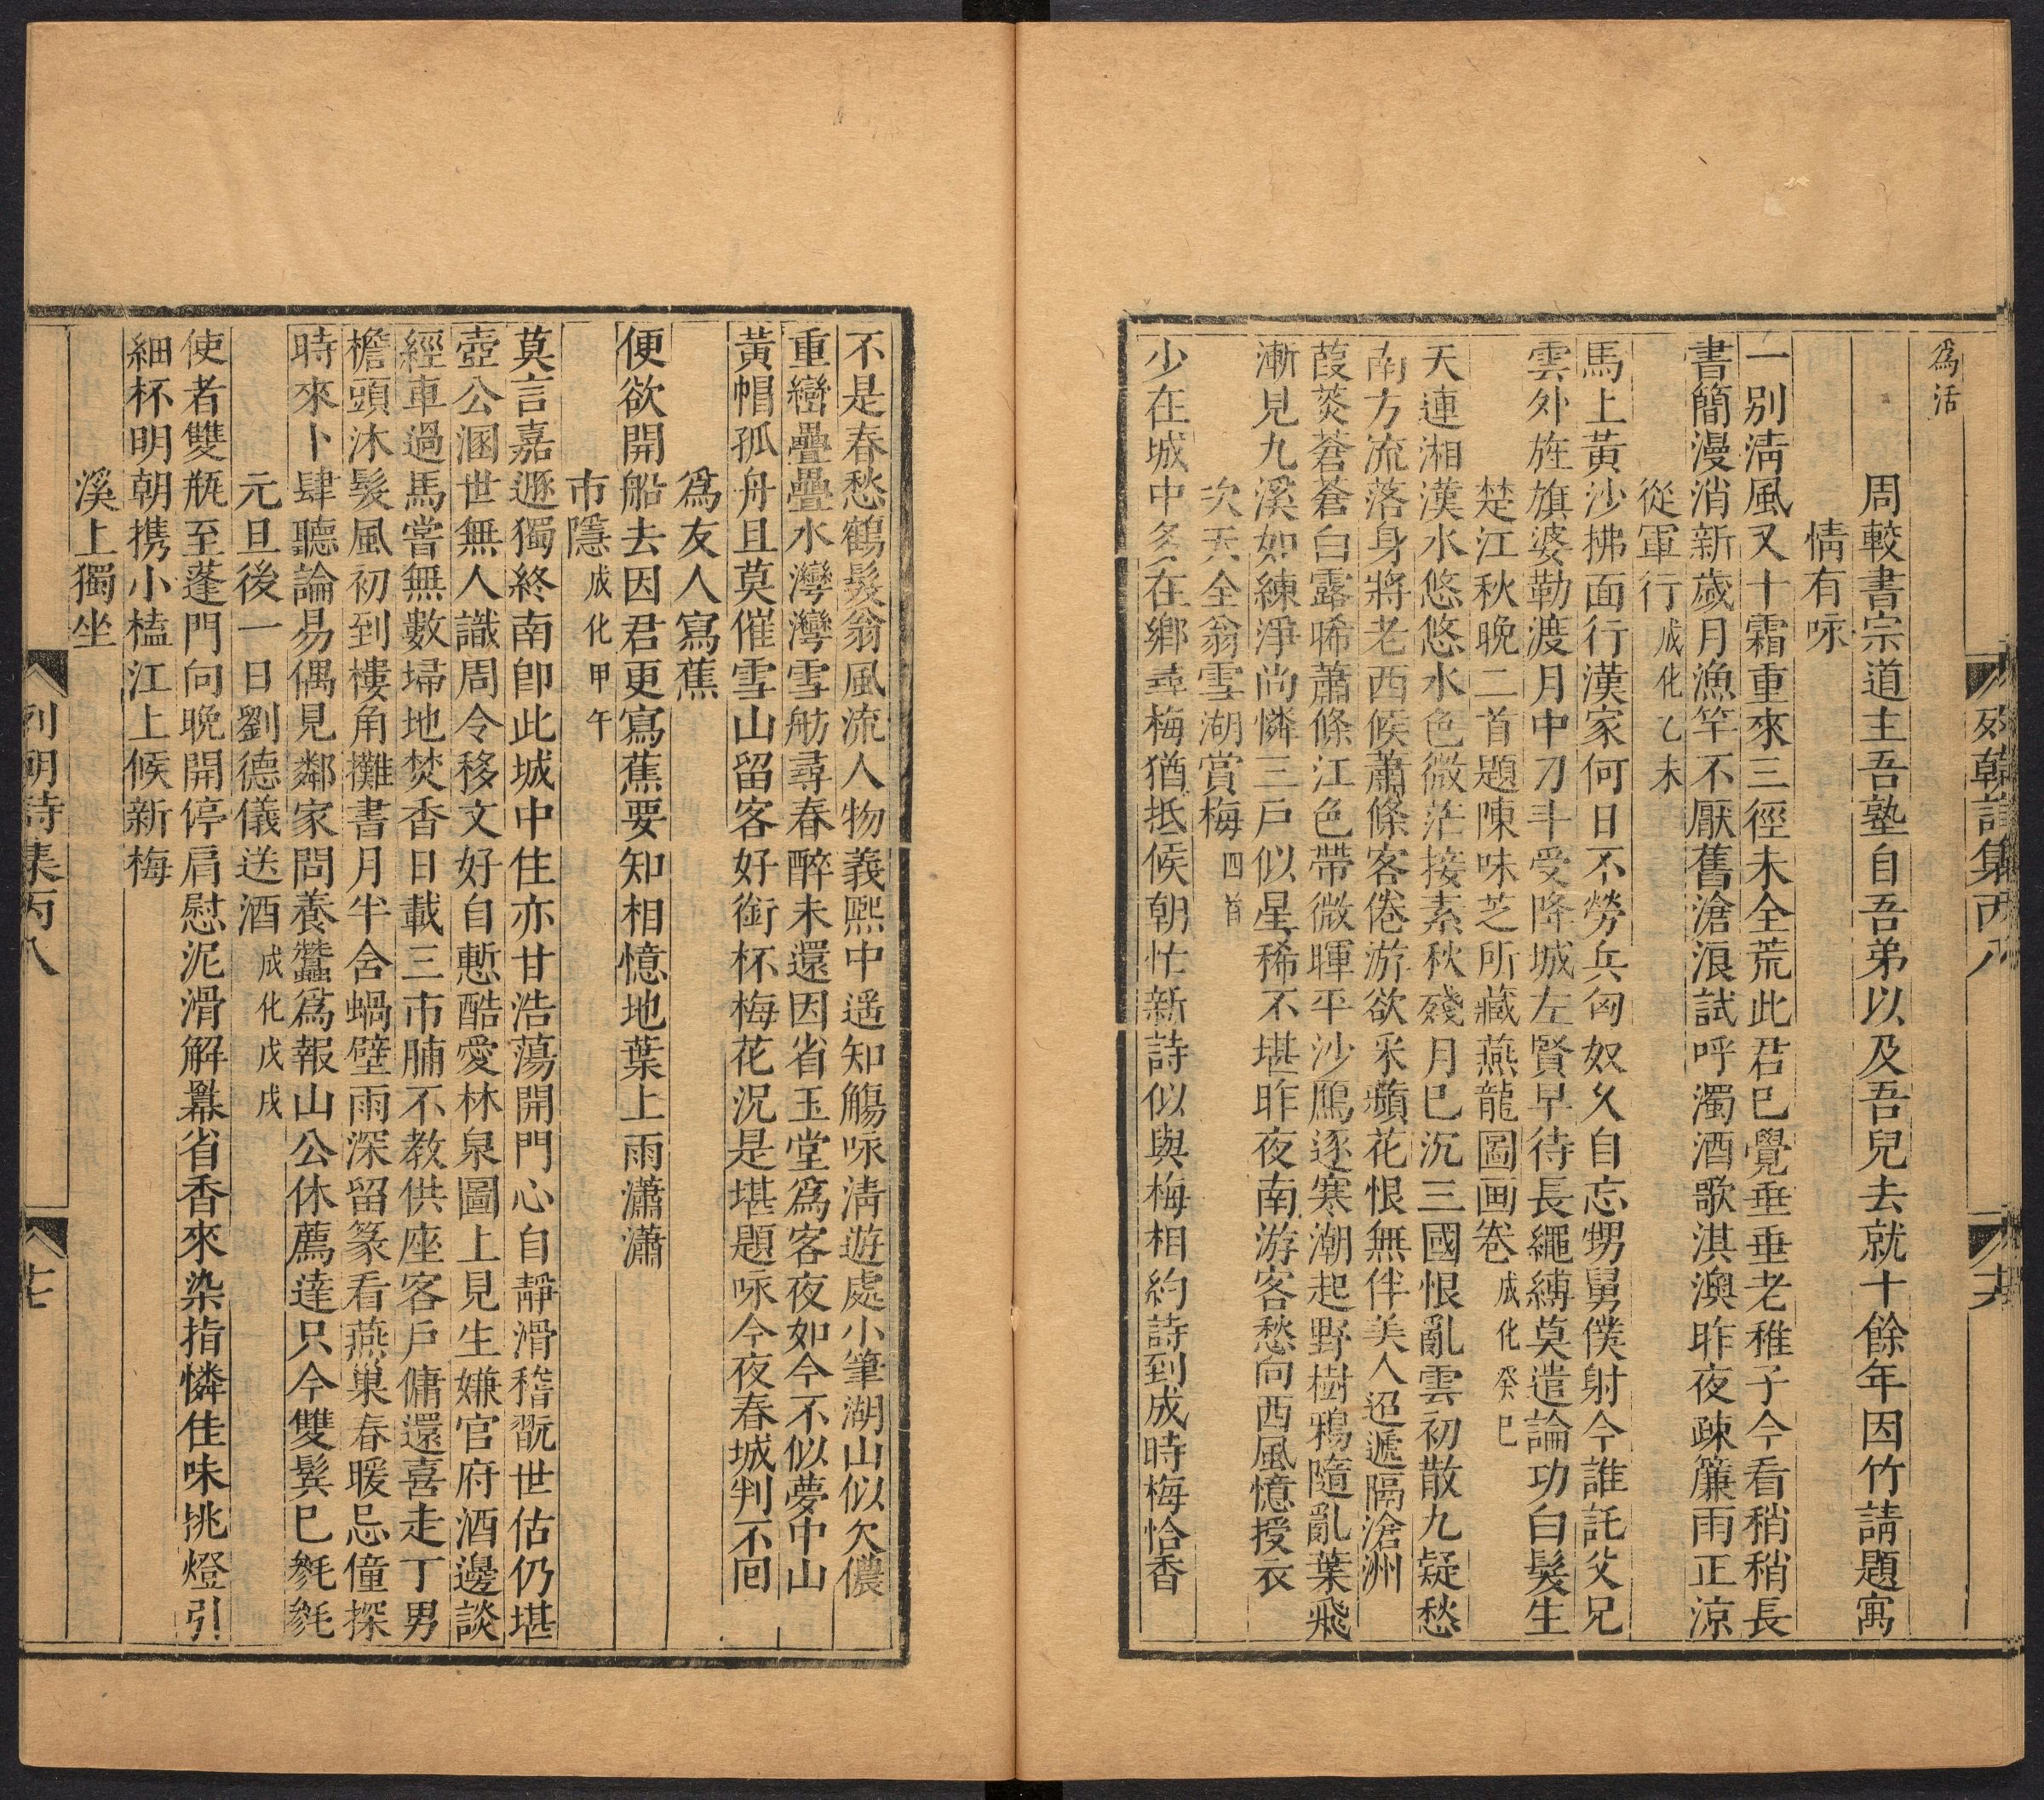 為活
周較書宗道主吾塾自吾弟以及吾兒去就十餘年因竹請題寓
情有咏
一別淸風又十霜重來三徑未全荒此君已覺垂垂老稚子今看稍稍長
書簡漫消新歲月漁竿不厭舊滄浪試呼濁酒歌淇澳昨夜疎簾雨正涼
從軍行成化乙未
馬上黃沙拂面行漢家何日不勞兵匈奴久自忘甥舅僕射今誰託父兄
雲外旌旗婆勒渡月中刀斗受降城左賢早待長繩縛莫遣論功白髮生
楚江秋晚二首題陳味芝所藏燕龍圖画卷成化癸巳
天連湘漢水悠悠水色微茫接素秋殘月已沉三國恨亂雲初散九疑愁
南方流落身將老西候蕭條客倦游欲采蘋花恨無伴美人迢遞隔滄洲
葭菼蒼蒼白露晞蕭條江色帶微暉平沙鴈逐寒潮起野樹鴉隨亂葉飛
漸見九溪如練淨尚憐三戶似星稀不堪昨夜南游客愁向西風憶授衣
次天全翁雪湖賞梅四首
少在城中多在鄉尋梅猶抵候朝忙新詩似與梅相約詩到成時梅恰香
不是春愁鶴髮翁風流人物義熙中遥知觴咏淸遊處小筆湖山似欠儂
重巒疊疊水灣灣雪舫尋春醉未還因省玉堂爲客夜如今不似夢中山
黃帽孤舟且莫催雪山留客好銜杯梅花況是堪題咏今夜春城判不回
爲友人寫蕉
便欲開船去因君更寫蕉要知相憶地葉上雨瀟瀟
市隱成化甲午
莫言嘉遯獨終南卽此城中住亦甘浩蕩開門心自靜滑稽翫世估仍堪
壺公溷世無人識周令移文好自慙酷愛林泉圖上見生嫌官府酒邊談
經車過馬嘗無數埽地焚香日載三市脯不教供座客戶傭還喜走丁男
檐頭沐髮風初到樓角攤書月半含蝸壁雨深留篆看燕巢春暖忌僮探
時來卜肆聽論易偶見鄰家問養蠶爲報山公休薦達只今雙鬂已毿毿
元旦後一日劉德儀送酒成化戊戌
使者雙瓶至蓬門向晚開停肩慰泥滑解羃省香來染指憐佳味挑燈引
細杯明朝携小榼江上候新梅
溪上獨坐